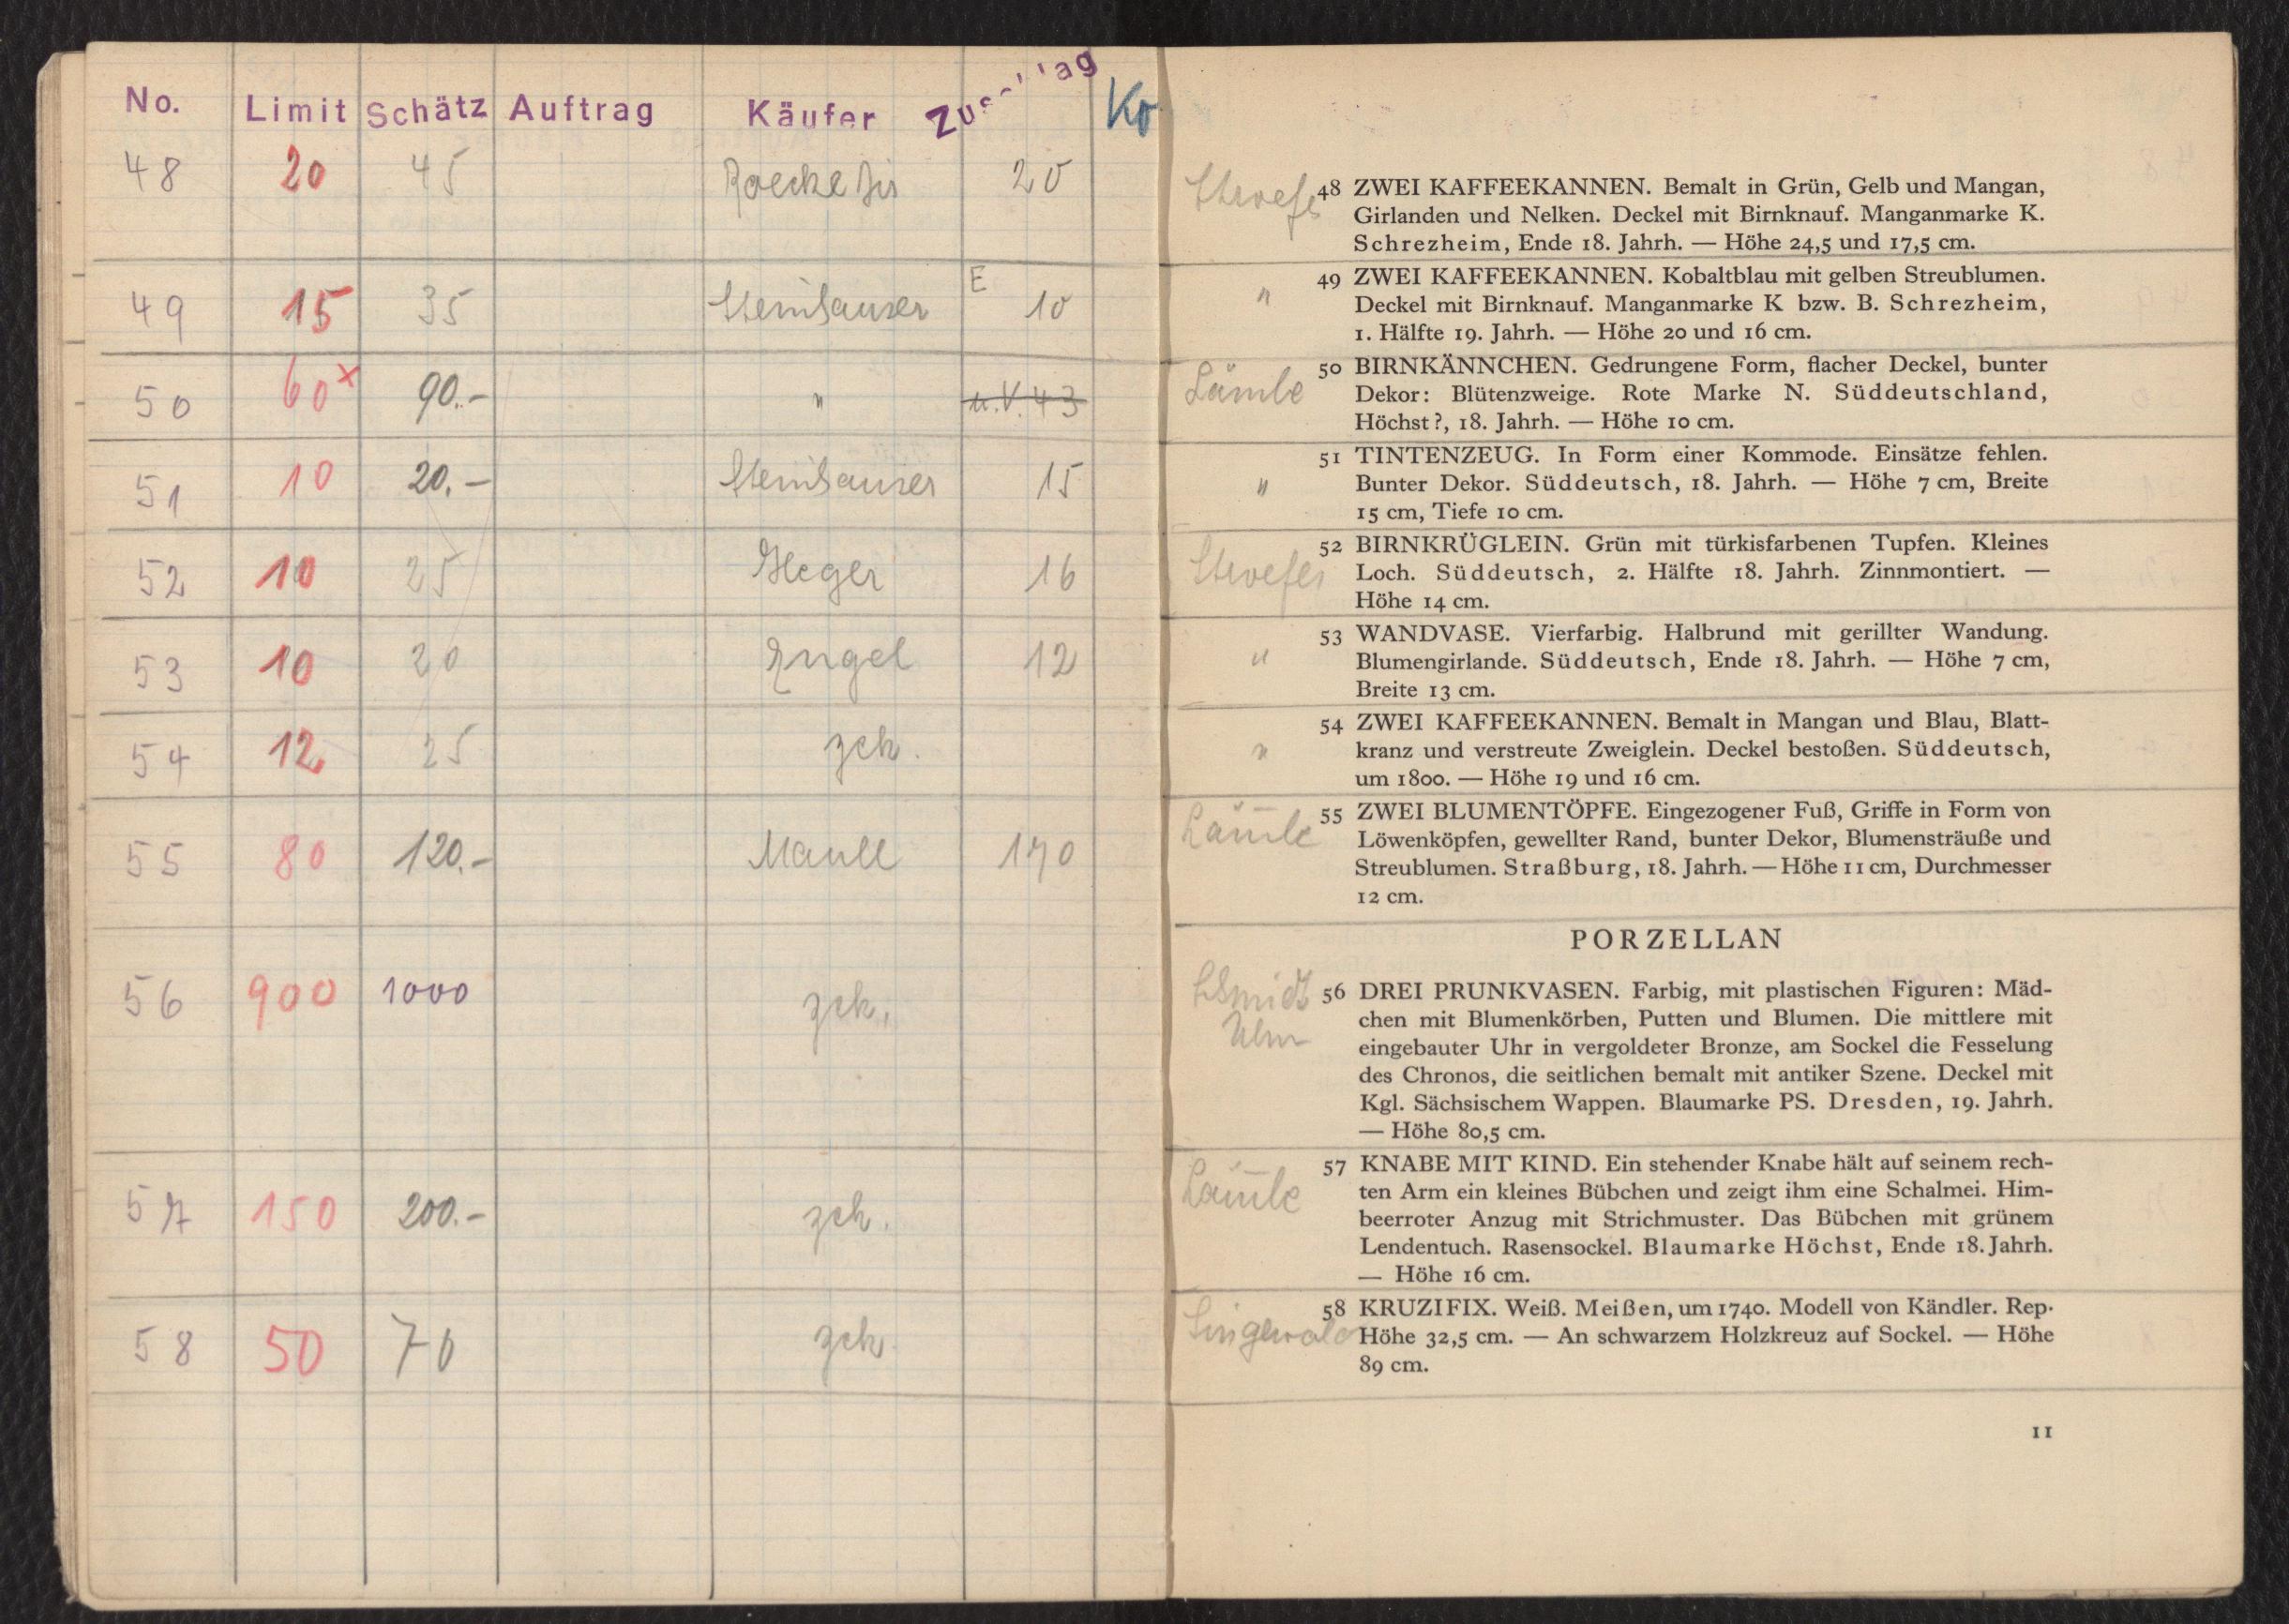 No. Limit Schätz Auftrag Käufer Zuschlag Ko
48 20 45 20
49 15 35 Steinhauser E 10
50 60 x 90.- " u.V. 43
51 10 20.- Steinhauser 15
52 10 25 Heger 16
53 10 20 Engel 12
54 12 25 zck.
55 80 120.- Maull 170
56 900 1000 zck.
57 150 200.- zck.
58 50 70 zck.
48 ZWEI KAFFEEKANNEN. Bemalt in Grün, Gelb und Mangan,
Girlanden und Nelken. Deckel mit Birnknauf. Manganmarke K.
Schrezheim, Ende 18. Jahrh. — Höhe 24,5 und 17,5 cm.
" 49 ZWEI KAFFEEKANNEN. Kobaltblau mit gelben Streublumen.
Deckel mit Birnknauf. Manganmarke K bzw. B. Schrezheim,
1. Hälfte 19. Jahrh. — Höhe 20 und 16 cm.
Lämle 50 BIRNKÄNNCHEN. Gedrungene Form, flacher Deckel, bunter
Dekor: Blütenzweige. Rote Marke N. Süddeutschland,
Höchst?, 18. Jahrh. — Höhe 10 cm.
" 51 TINTENZEUG. In Form einer Kommode. Einsätze fehlen.
Bunter Dekor. Süddeutsch, 18. Jahrh. — Höhe 7 cm, Breite
15 cm, Tiefe 10 cm.
52 BIRNKRÜGLEIN. Grün mit türkisfarbenen Tupfen. Kleines
Loch. Süddeutsch, 2. Hälfte 18. Jahrh. Zinnmontiert. —
Höhe 14 cm.
" 53 WANDVASE. Vierfarbig. Halbrund mit gerillter Wandung.
Blumengirlande. Süddeutsch, Ende 18. Jahrh. — Höhe 7 cm,
Breite 13 cm.
" 54 ZWEI KAFFEEKANNEN. Bemalt in Mangan und Blau, Blatt-
kranz und verstreute Zweiglein. Deckel bestoßen. Süddeutsch,
um 1800. — Höhe 19 und 16 cm.
Lämle 55 ZWEI BLUMENTÖPFE. Eingezogener Fuß, Griffe in Form von
Löwenköpfen, gewellter Rand, bunter Dekor, Blumensträuße und
Streublumen. Straßburg, 18. Jahrh. — Höhe 11 cm, Durchmesser
12 cm.
PORZELLAN
Schmidt 56 DREI PRUNKVASEN. Farbig, mit plastischen Figuren: Mäd-
Ulm chen mit Blumenkörben, Putten und Blumen. Die mittlere mit
eingebauter Uhr in vergoldeter Bronze, am Sockel die Fesselung
des Chronos, die seitlichen bemalt mit antiker Szene. Deckel mit
Kgl. Sächsischem Wappen. Blaumarke PS. Dresden, 19. Jahrh.
— Höhe 80,5 cm.
Lämle 57 KNABE MIT KIND. Ein stehender Knabe hält auf seinem rech-
ten Arm ein kleines Bübchen und zeigt ihm eine Schalmei. Him-
beerroter Anzug mit Strichmuster. Das Bübchen mit grünem
Lendentuch. Rasensockel. Blaumarke Höchst, Ende 18. Jahrh.
— Höhe 16 cm.
58 KRUZIFIX. Weiß. Meißen, um 1740. Modell von Kändler. Rep.
Höhe 32,5 cm. — An schwarzem Holzkreuz auf Sockel. — Höhe
89 cm.
11